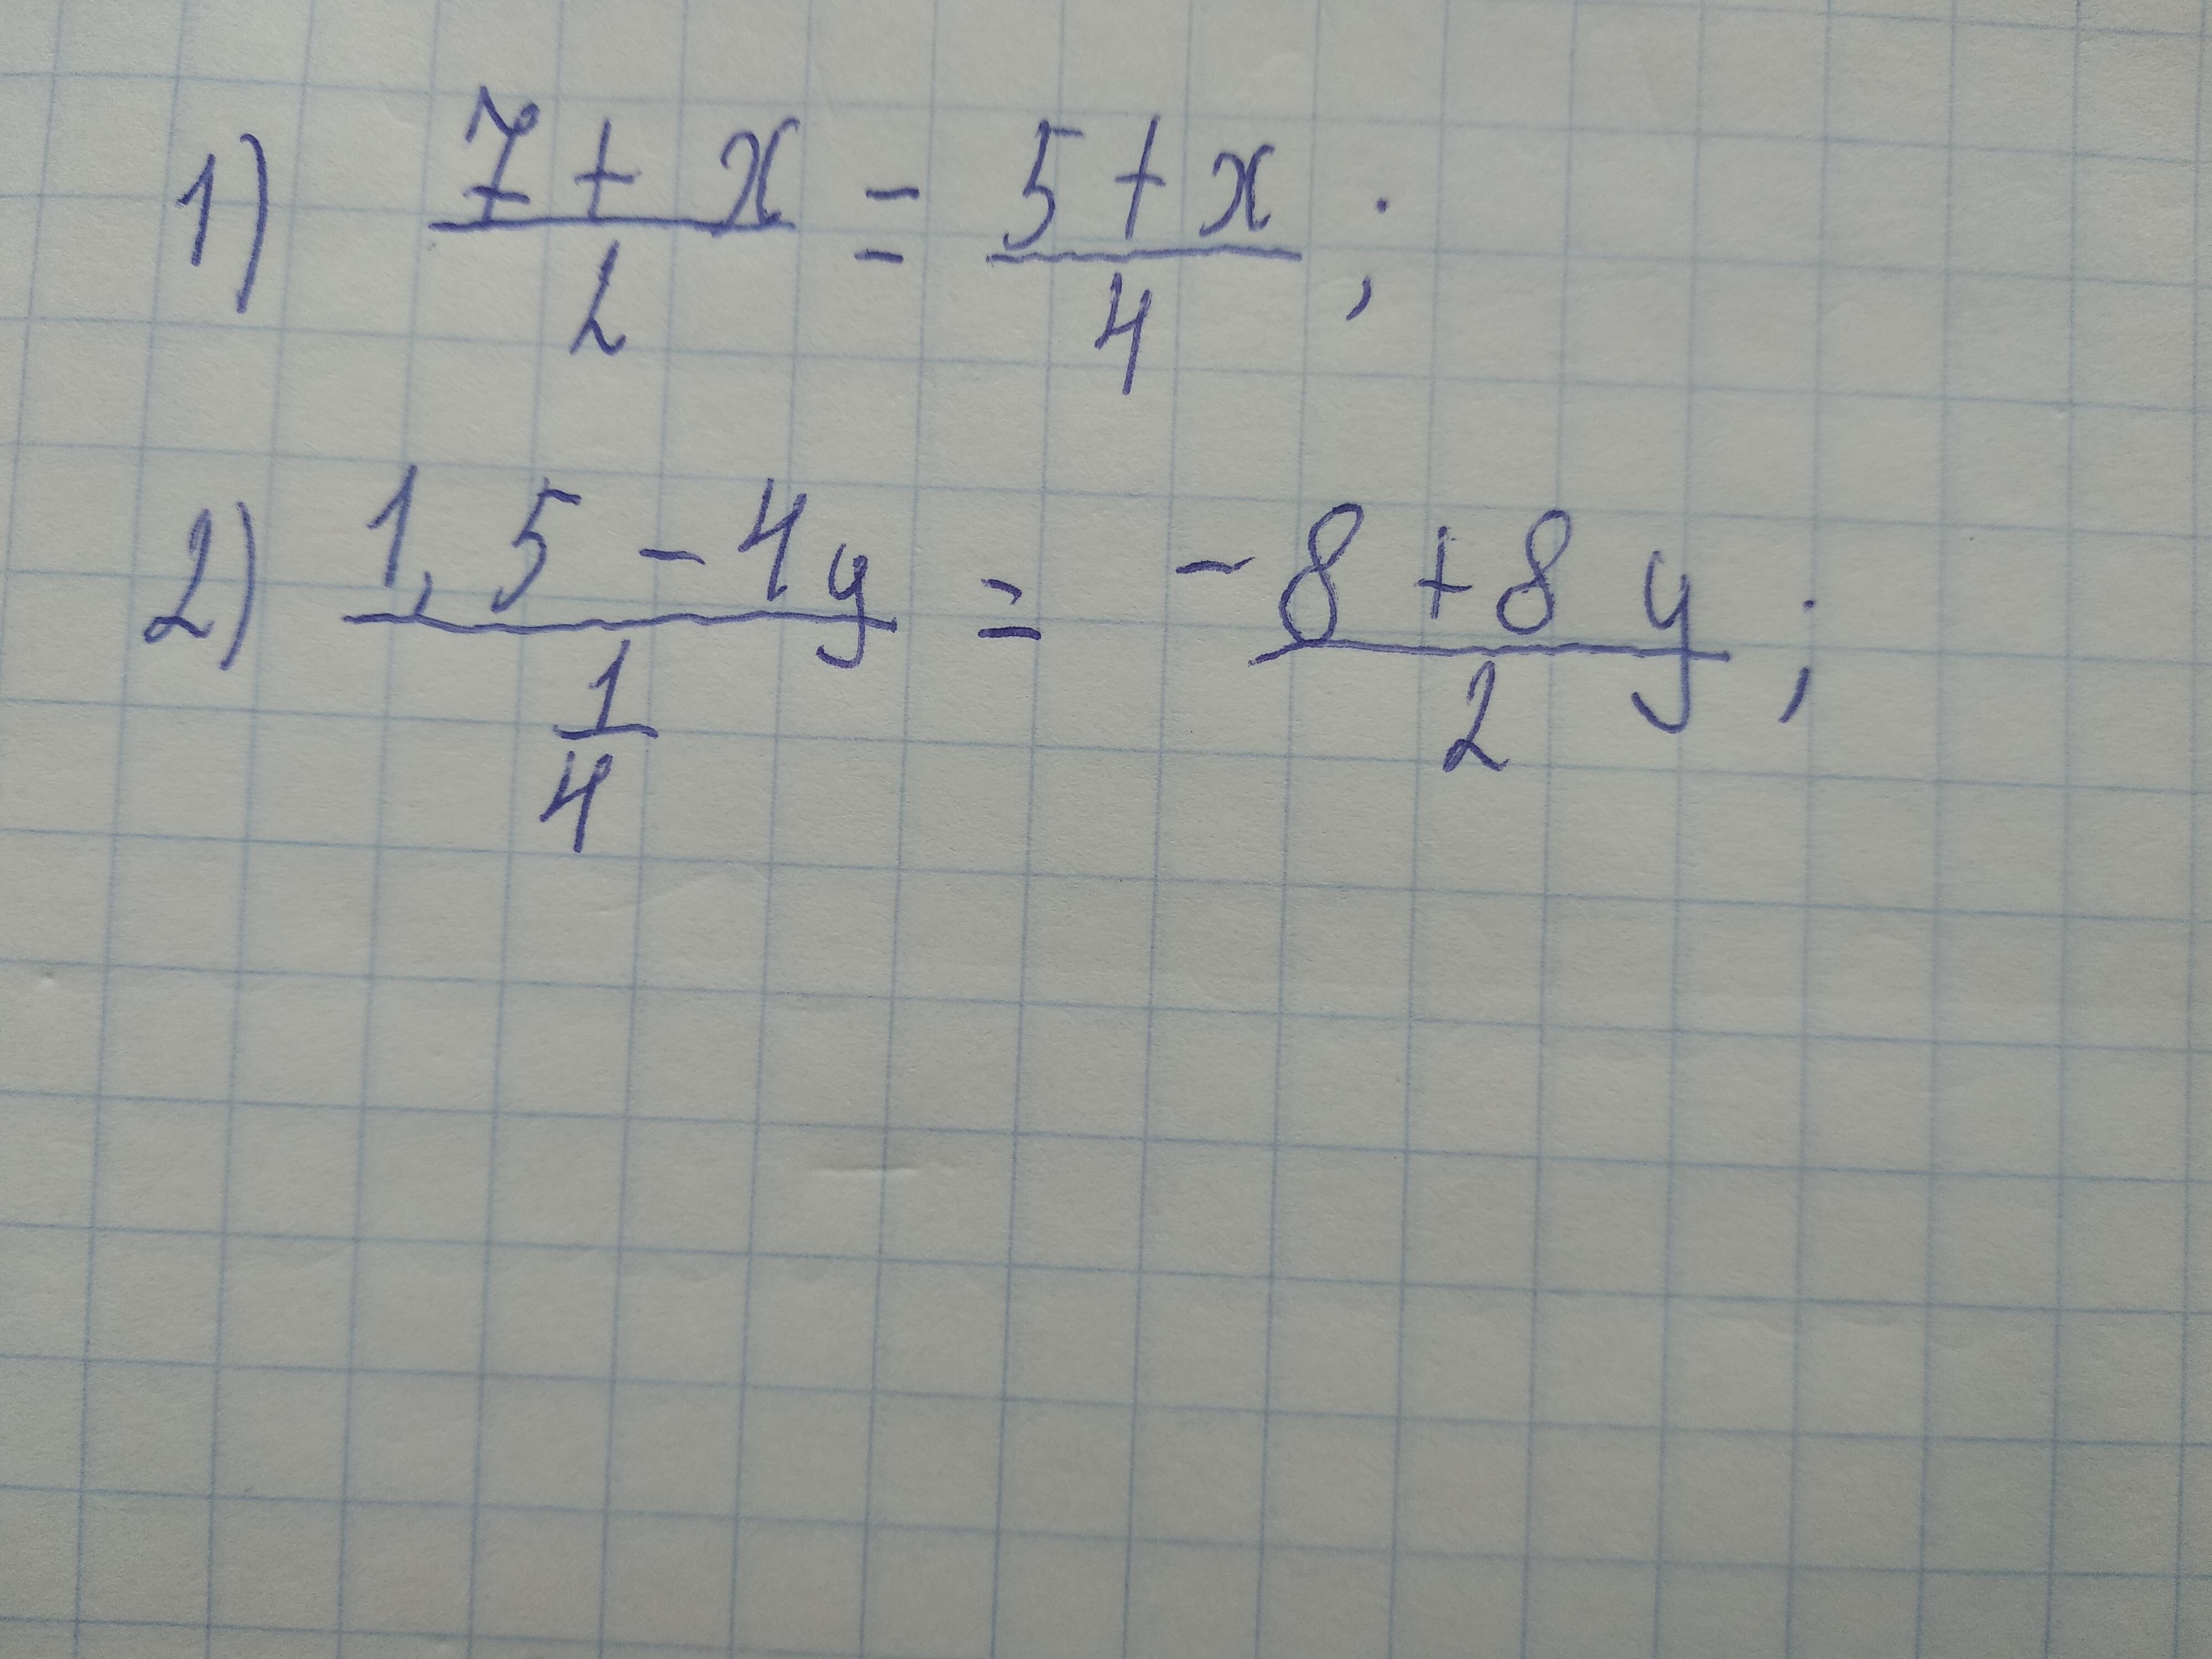 1) (7 + x)/2 = (5 + x)/4 ;
2) (1,5 - 4y)/(1/4) = (-8 + 8y)/2 ;